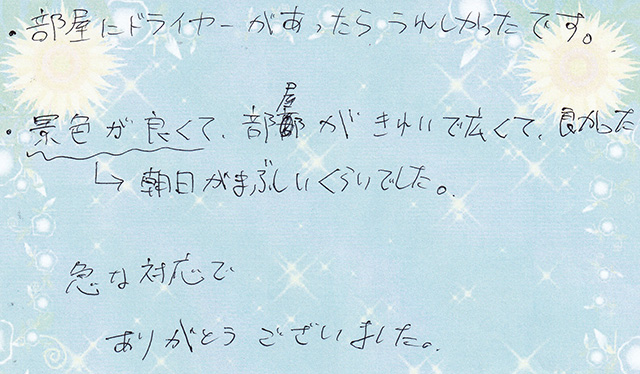 ・部屋にドライヤーがあったらうれしかったです。
・景色が良くて、部屋がきれいで広くて、良かった
↳朝日がまぶしいくらいでした。
急な対応で
ありがとうございました。